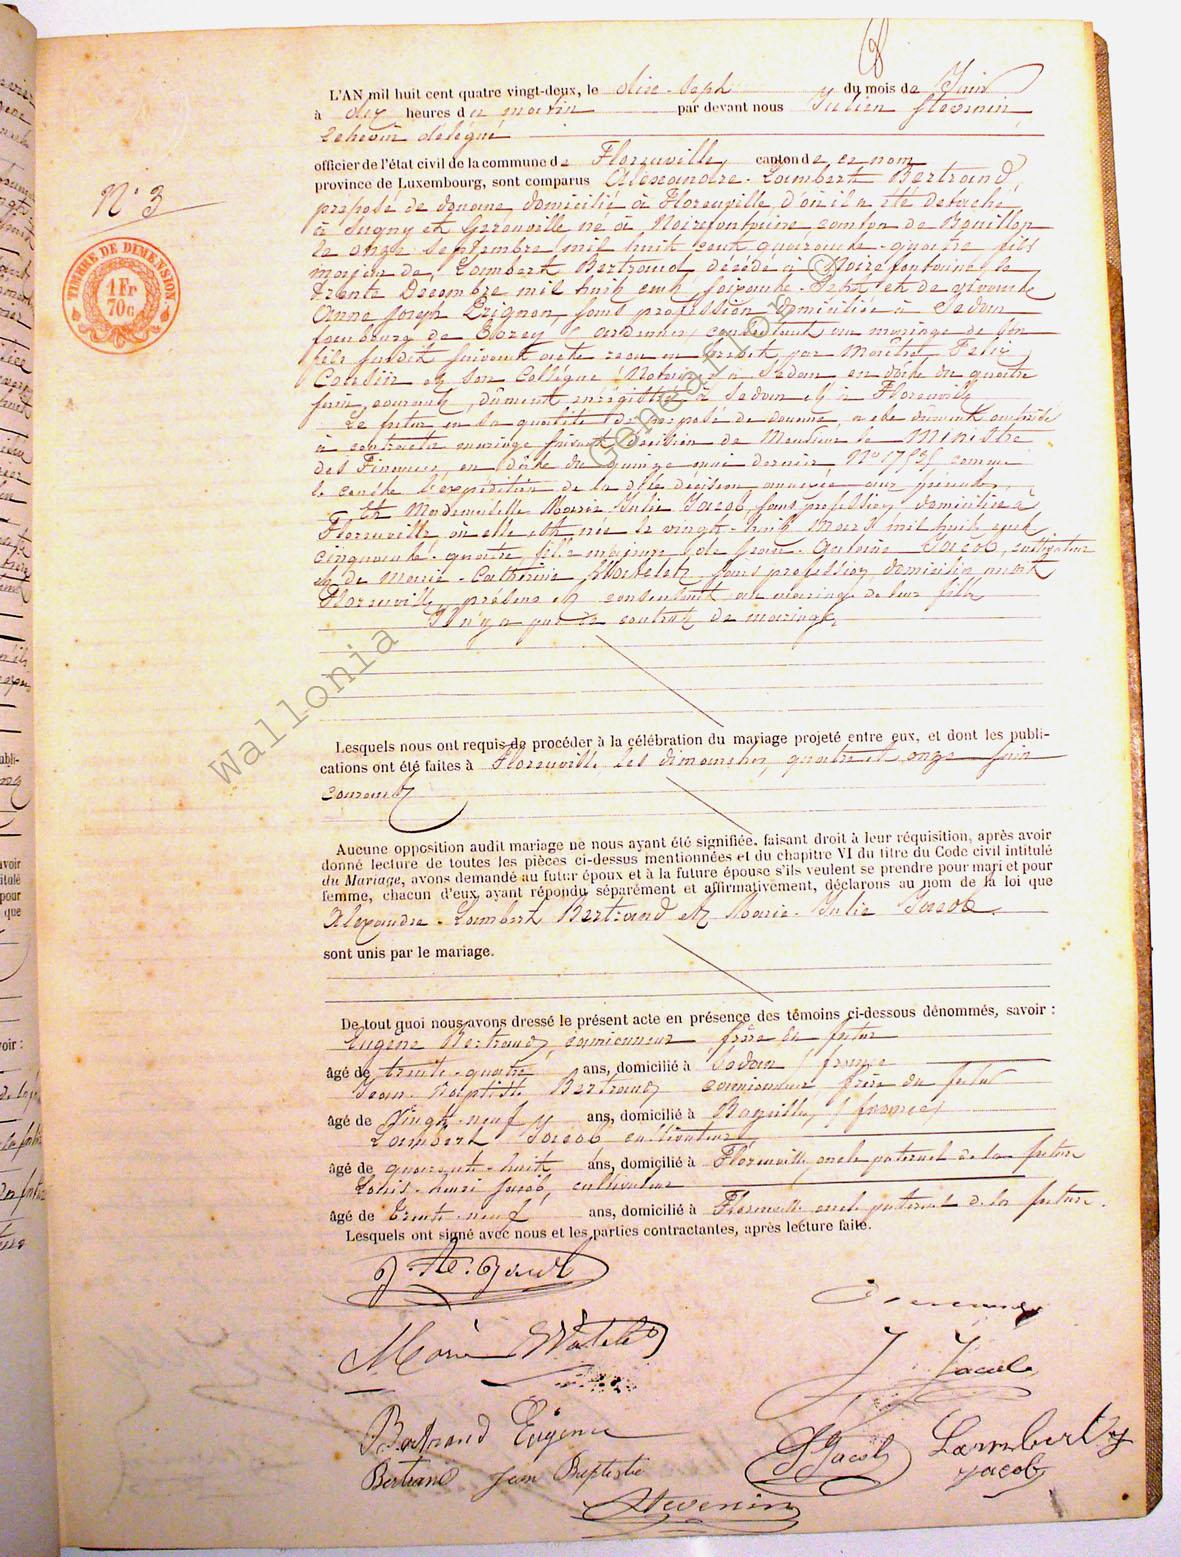 L'AN mil huit cent quatre vingt-deux, le dixe-sept du mois de Juin
à dix heures du matin par devant nous Julien Stevenin,
echevin délégué
officier de l'état civil de la commune de Florenville, canton de ce nom
province de Luxembourg, sont comparus Alexandre-Lambert Bertrand,
N° 3
préposé de douane, domicilié à Florenville, d'où il a été détaché
à Sugny et Gerouville né à Noirefontaine canton de Bouillon
le onze septembre mil huit cent quarante-quatre fils
majeur de Lambert Bertrand, décédé à Noirefontaine, le
trente Decembre mil huit cent soixante-sept et de vivante
Anne Joseph Pignon, sans profession, domiciliée à Sedan
TIMBRE DE DIMENSION
1 Fr
70 c
faubourg de (Ardennes) consentant au mariage de son
fils susdit suivant acte recu en brevet par Maître Felix
et son Collégue, Notaires à Sedan en date du quatre
juin, courant, dûment enrégistré à Sedan et à Florenville
Le futur en sa qualité de préposé de douane, a été dûment autorisé
à contracter mariage suivant décision de Monsieur le Ministre
des Finances, en date du quinze mai dernier N° comme
le constate l'expédition de la dite décision annexée aux présentes.
Et Mademoiselle Marie Julie Jacob, sans profession, domiciliée à
Florenville où elle est née le vingt-huit Mars mil huit cent
cinquante-quatre, fille majeure de Jean-Antoine Jacob, cultivateur
et de Marie-Catherine Watelet, sans profession, domiciliés audit
Florenville, présens et consentant au mariage de leur fille
Il n'y a pas de contrat de mariage.
Lesquels nous ont requis de procéder à la célébration du mariage projeté entre eux, et dont les publi-
cations ont été faites à Florenville les dimanches, quatre et onze juin
courant
Aucune opposition audit mariage ne nous ayant été signifiée, faisant droit à leur réquisition, après avoir
donné lecture de toutes les pièces ci-dessus mentionnées et du chapitre VI du titre du Code civil intitulé
du Mariage, avons demandé au futur époux et à la future épouse s'ils veulent se prendre pour mari et pour
femme, chacun d'eux ayant répondu séparément et affirmativement, déclarons au nom de la loi que
Alexandre-Lambert Bertrand et Marie-Julie Jacob
sont unis par le mariage.
De tout quoi nous avons dressé le présent acte en présence des témoins ci-dessous dénommés, savoir :
Eugène Bertrand, camionneur frère du futur
âgé de trente-quatre ans, domicilié à Sedan (france
Jean-Baptiste Bertrand camionneur, frère du futur
âgé de Vingt-neuf ans, domicilié à Bazeilles, (france)
Lambert Jacob cultivateur
âgé de quarante-huit ans, domicilié à Florenville, oncle paternel de la future
Louis-henri Jacob, cultivateur
âgé de trente-neuf ans, domicilié à Florenville oncle paternel de la future.
Lesquels ont signé avec nous et les parties contractantes, après lecture faite.
Marie Watelet
J Jacob
Bertrand Eugène
Jacob
Lambert
Jacob
Bertrand Jean Baptiste
Stevenin
Wallonia Geneaflor ©